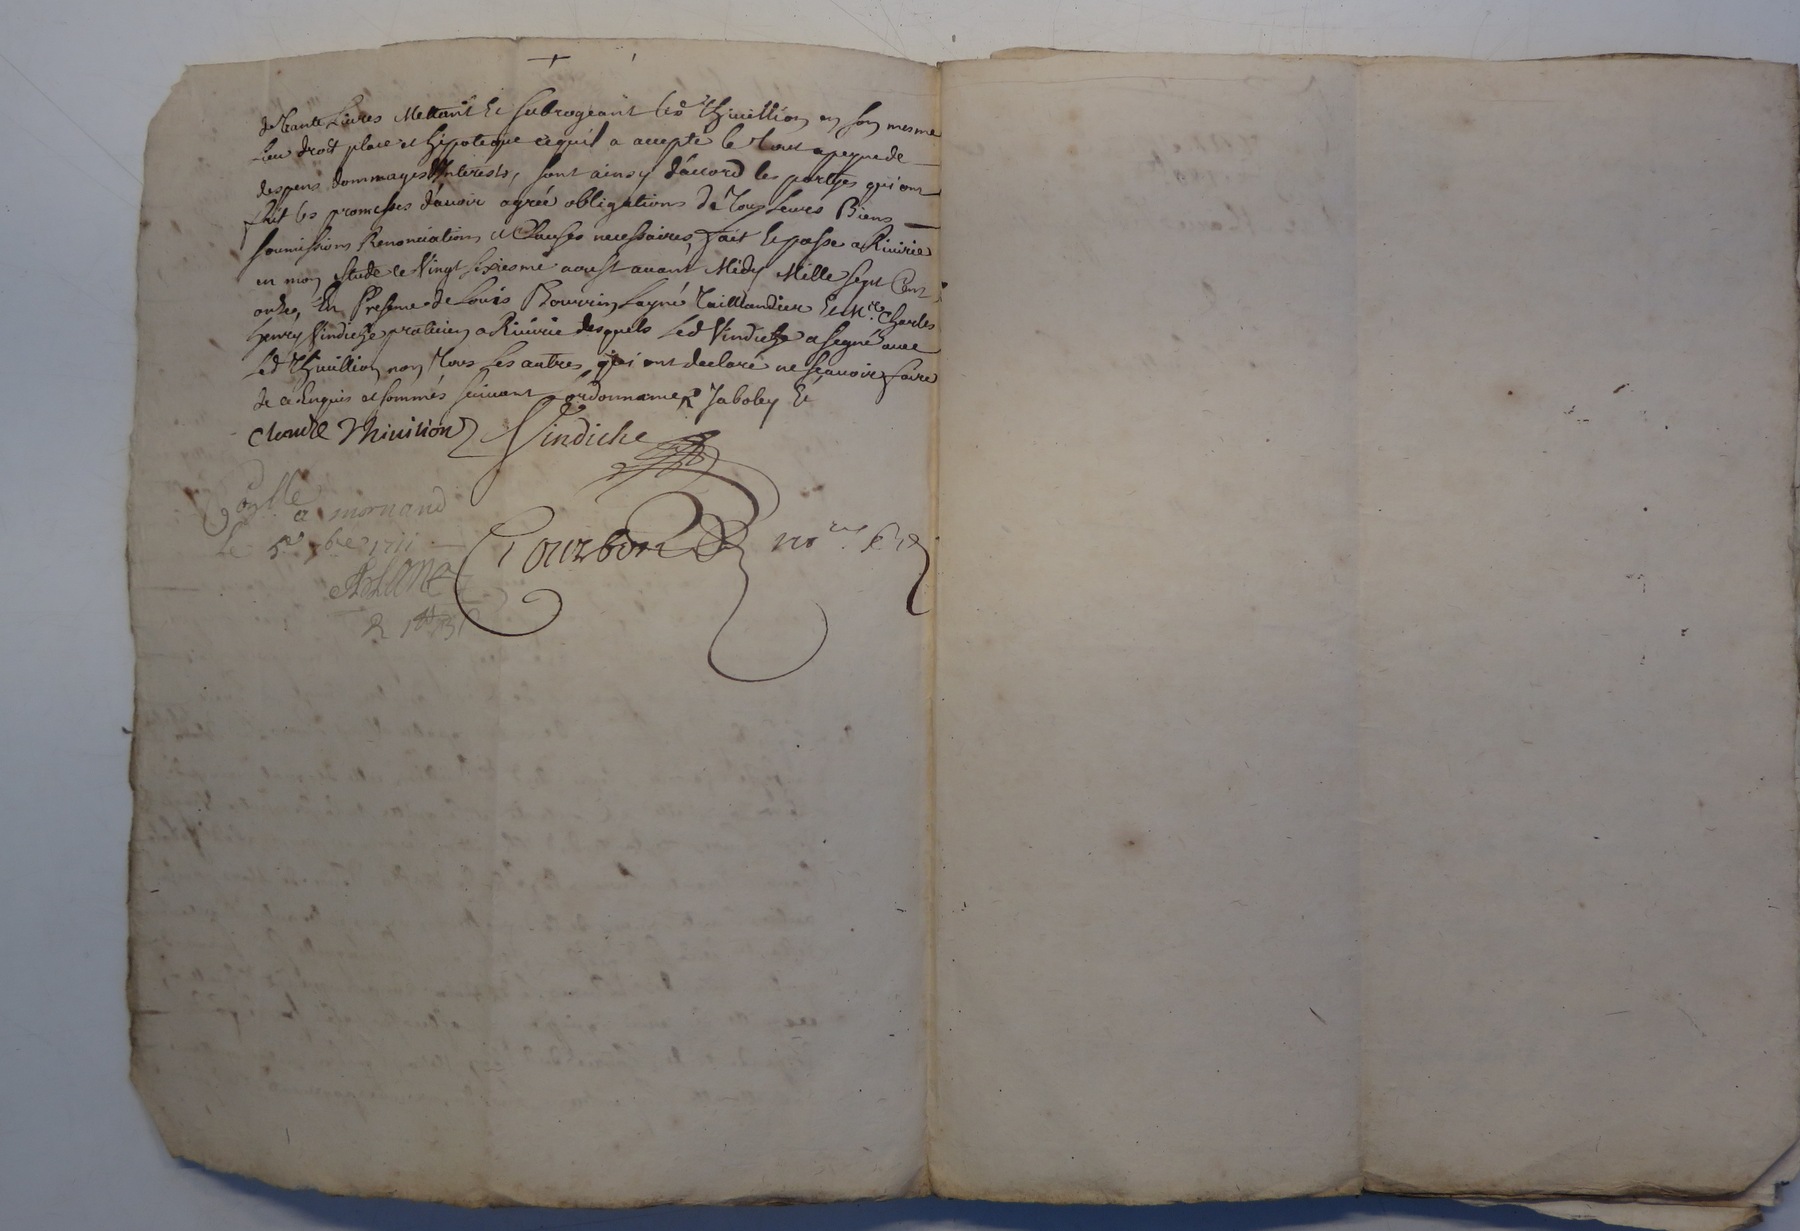 de Tante Livres Mettant Et subrogeant led Thivillion en son mesme
Lieu droit place et hipoteque ce quil a accepte le Tout a peyne de
despens dommages Interests, sont ainsy d'accord les parties qui ont
fait les promesses d'avoir agrée obligations De Tous Leurs Biens
soumissions Renonciations et Clauses necessaires, fait Et passe a Riuirie
en mon Etude le Vingt sixiesme aoust auant Midy Mille sept Cent
onze, En Presence de Louis Bourrin Layné Taillandier Et Mre Charles
henry Vindiche praticien a Riuirie desquels Led Vindiche a signé avec
Led Thivillion non Tous les autres qui ont declaré ne scauoir faire
de ce Enquis et sommés suivant L'ordonnance Jaboley Et
Claude Thivilion Vindiche
a mornand
Le 5e 7bre 1711
Courbon no.re